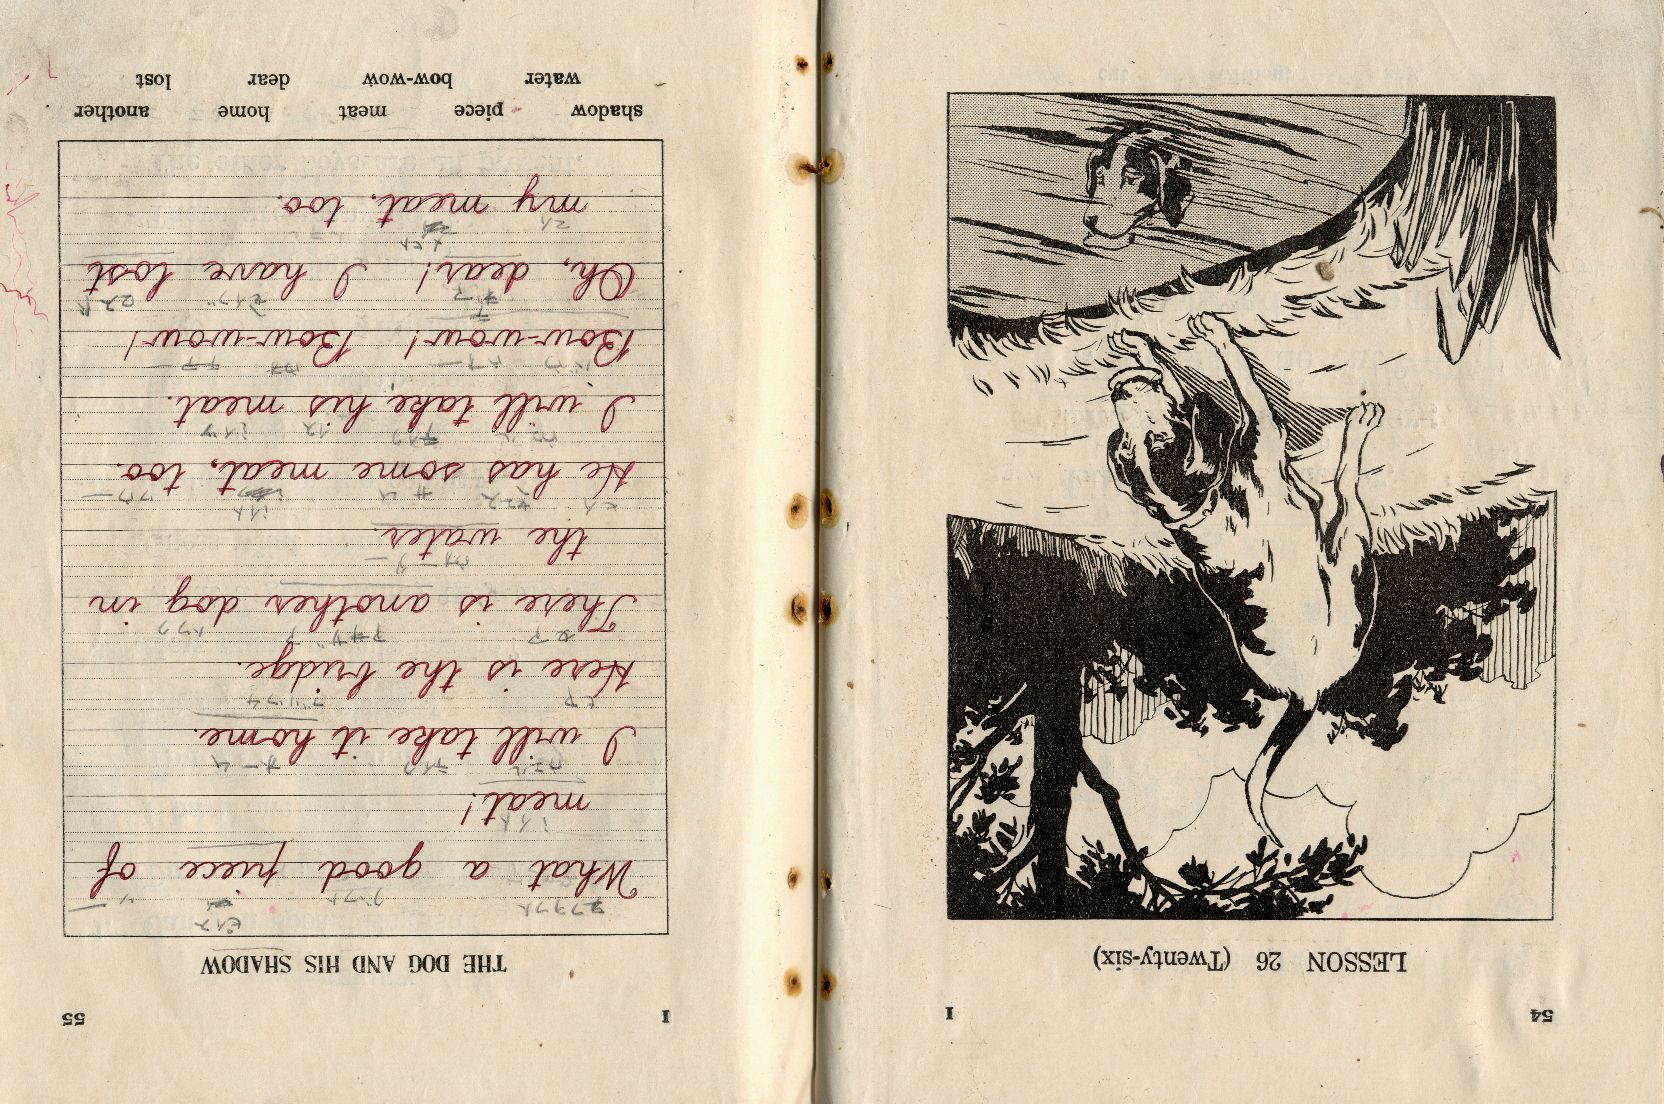 54
I
LESSON 26 (Twenty-six)
I
55
THE DOG AND HIS SHADOW
What a good piece of
meat!
I will take it home.
Here is the bridge.
There is another dog in
the water.
He has some meat, too.
I will take his meat.
Bow-wow! Bow-wow!
Oh, dear! I have lost
my meat, too.
shadow piece meat home another
water bow-wow dear lost